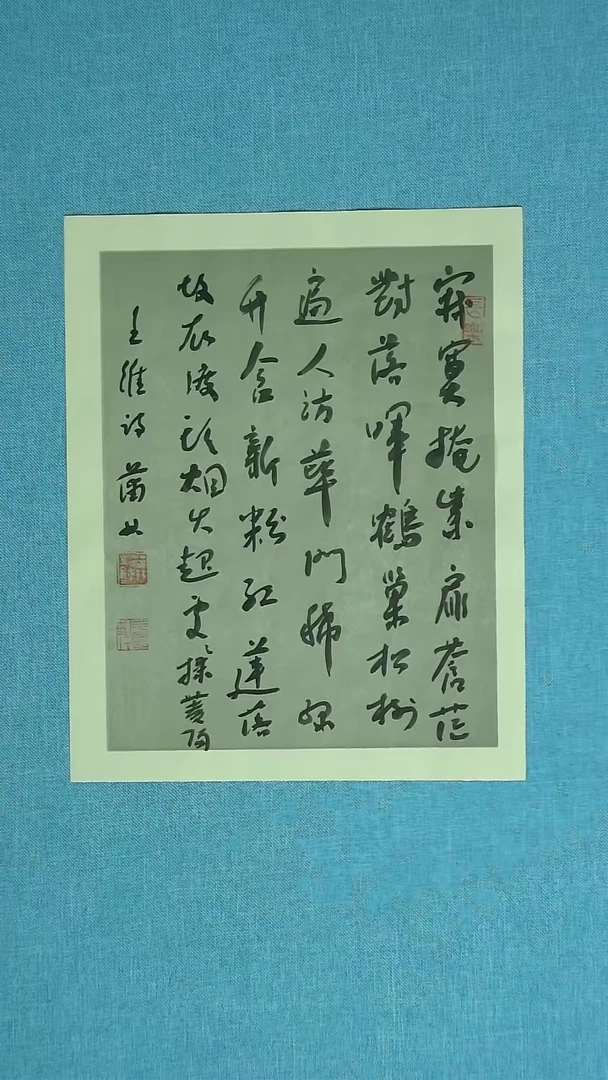 寂寞掩柴扉蒼茫
對落暉鶴巢松樹
遍人訪蓽門稀綠
竹含新粉紅蓮落
故衣渡頭烟火起處々採菱歸
王維詩